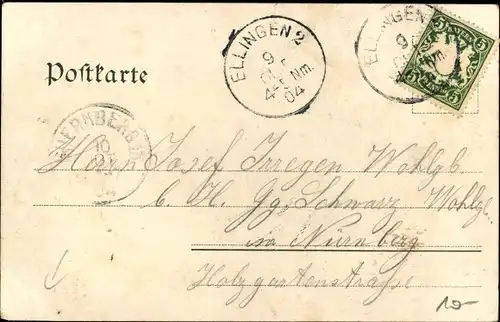 ELLINGEN 2
9
4-5 Nm.
04
ELLINGEN
9
Nm.
5 5
5 5
Postkarte
Herrn Josef Irregen Wohlgb.
b. H. Gg. Schwarz Wohlgb.
in Nürnberg
Holzgartenstraße
10-